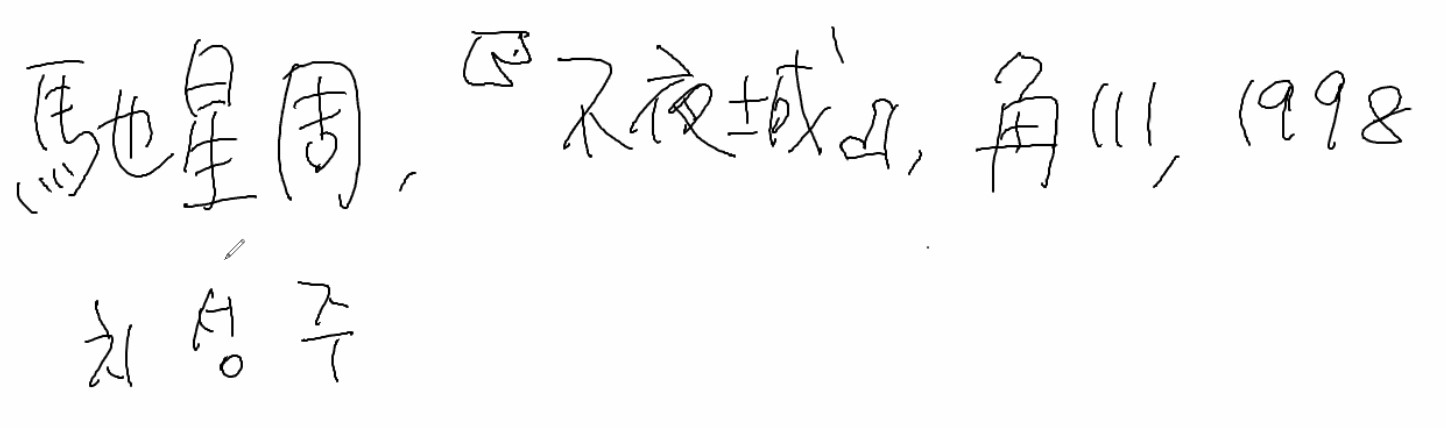 馳星周, 『不夜城』, 角川, 1998
치성주